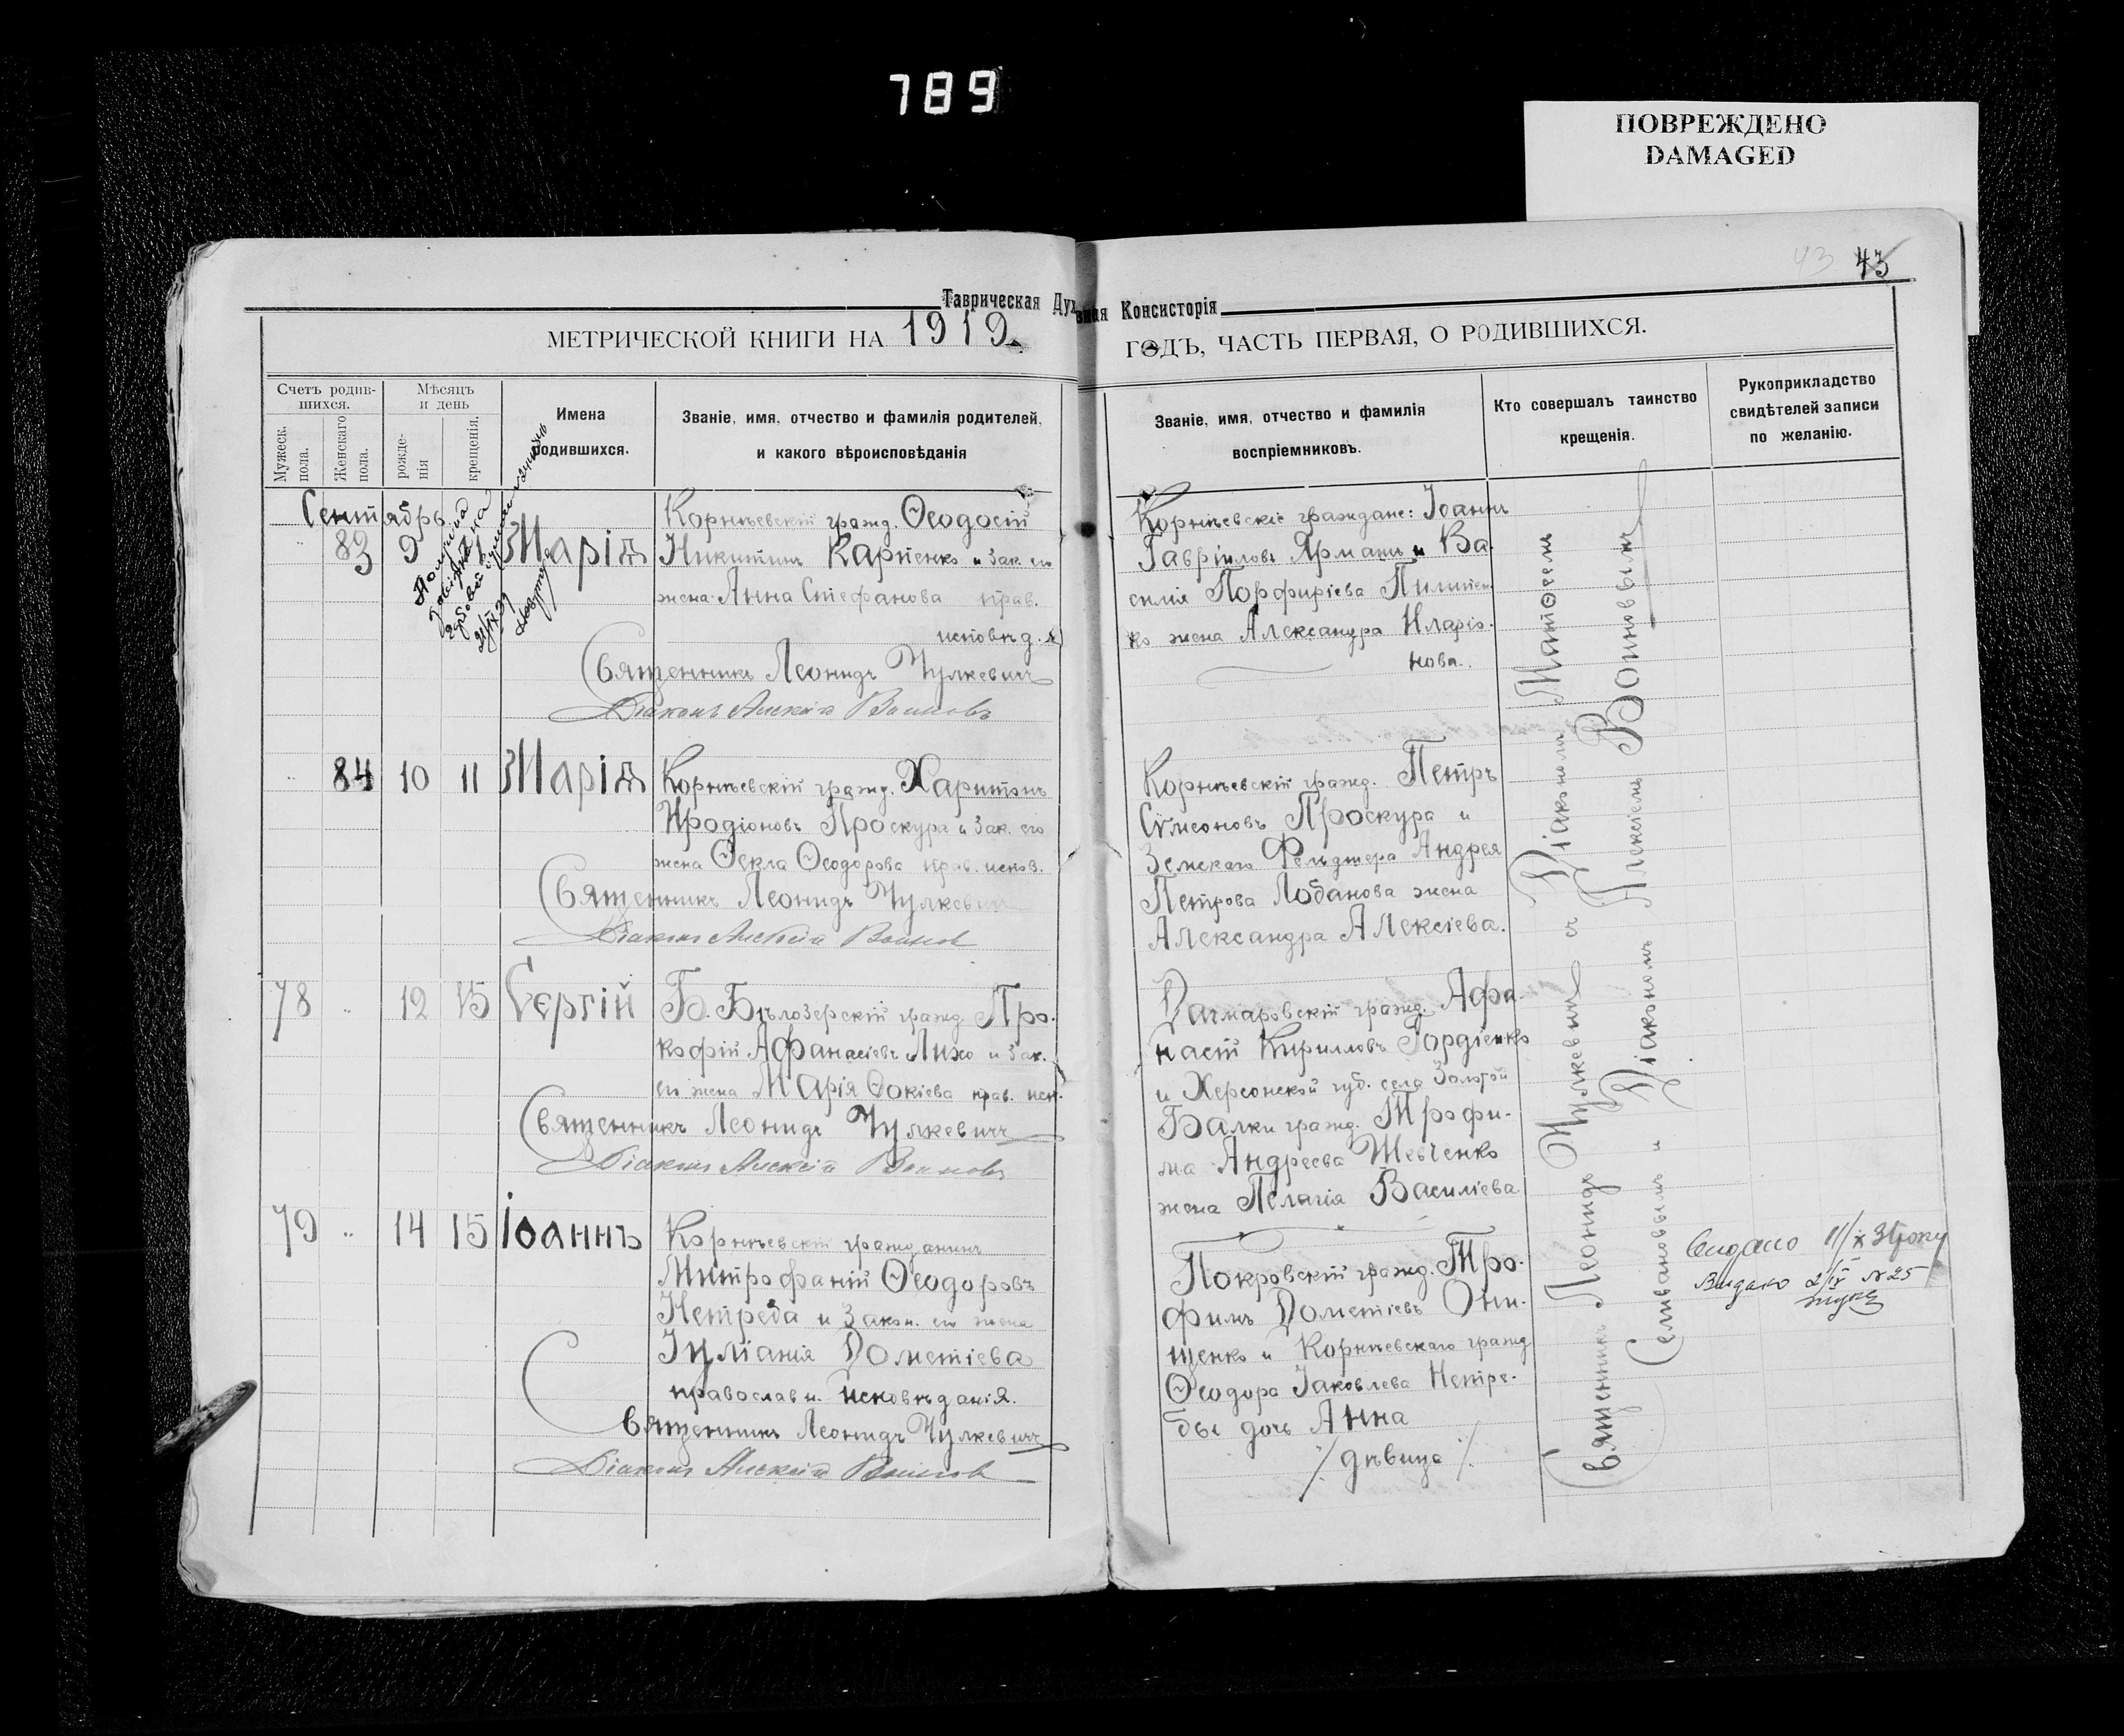 789
ПОВРЕЖДЕНО
DAMAGED
43 43
Таврическая Духовная Консисторія
МЕТРИЧЕСКОЙ КНИГИ НА 1919
ГОДЪ, ЧАСТЬ ПЕРВАЯ, О РОДИВШИХСЯ.
Счетъ родив-
шихся.
Мужеск.
пола.
Женскаго
пола.
Мѣсяцъ
и день
рожде-
нія
крещенія.
Имена
родившихся.
Званіе, имя, отчество и фамилія родителей,
и какого вѣроисповѣданія
Званіе, имя, отчество и фамилія
воспріемниковъ.
Кто совершалъ таинство
крещенія.
Рукоприкладство
свидѣтелей записи
по желанію.
Сентябрь
83 9 Марія
Корнѣевскій гражд. Ѳеодосій
Никитинъ Карпенко и зак. его
жена Анна Стефанова прав.
исповѣд.
Священникъ Леонидъ Чулкевичъ
Діаконъ Алексій Воиновъ
Корнѣевскіе граждане: Іоаннъ
Гавріиловъ Ярманъ и Ва-
силія Порфиріева Пилипен-
ко жена Александра Иларіо-
нова.
84 10 11 Марія
Корнѣевскій гражд. Харитонъ
Иродіоновъ Проскура и зак. его
жена Ѳекла Ѳеодорова прав. испов.
Священникъ Леонидъ Чулкевичъ
Діаконъ Алексій Воиновъ
Корнѣевскій гражд. Петръ
Сѵмеоновъ Проскура и
Земскаго Фельдшера Андрея
Петрова Лобанова жена
Александра Алексіева.
78 12 15 Сергій
Б. Бѣлозерскій гражд. Про-
кофій Афанасіевъ Лихо и зак.
его жена Марія Ѳокіева прав. исп.
Священникъ Леонидъ Чулкевичъ
Діаконъ Алексій Воиновъ
гражд. Афа-
насій Кирилловъ Гордіенко
и Херсонской губ. села Золотой
Балки гражд. Трофи-
ма Андреева Шевченко
жена Пелагія Василіева
79 14 15 Іоаннъ
Корнѣевскій гражданинъ
Митрофаній Ѳеодоровъ
Нетреба и Закон. его жена
Іуліанія Дометіева
православн. исповѣданія.
Священникъ Леонидъ Чулкевичъ
Діаконъ Алексій Воиновъ
Покровскій гражд. Тро-
фимъ Дометіевъ Они-
щенко и Корнѣевскаго гражд
Ѳеодора Іаковлева Нетре-
бы дочь Анна
дѣвица
Священникъ Леонидъ Чулкевичъ съ Діакономъ Матѳеемъ
Семвановымъ и Діакономъ Алексіемъ Воиновымъ
Видано
Видано № 25